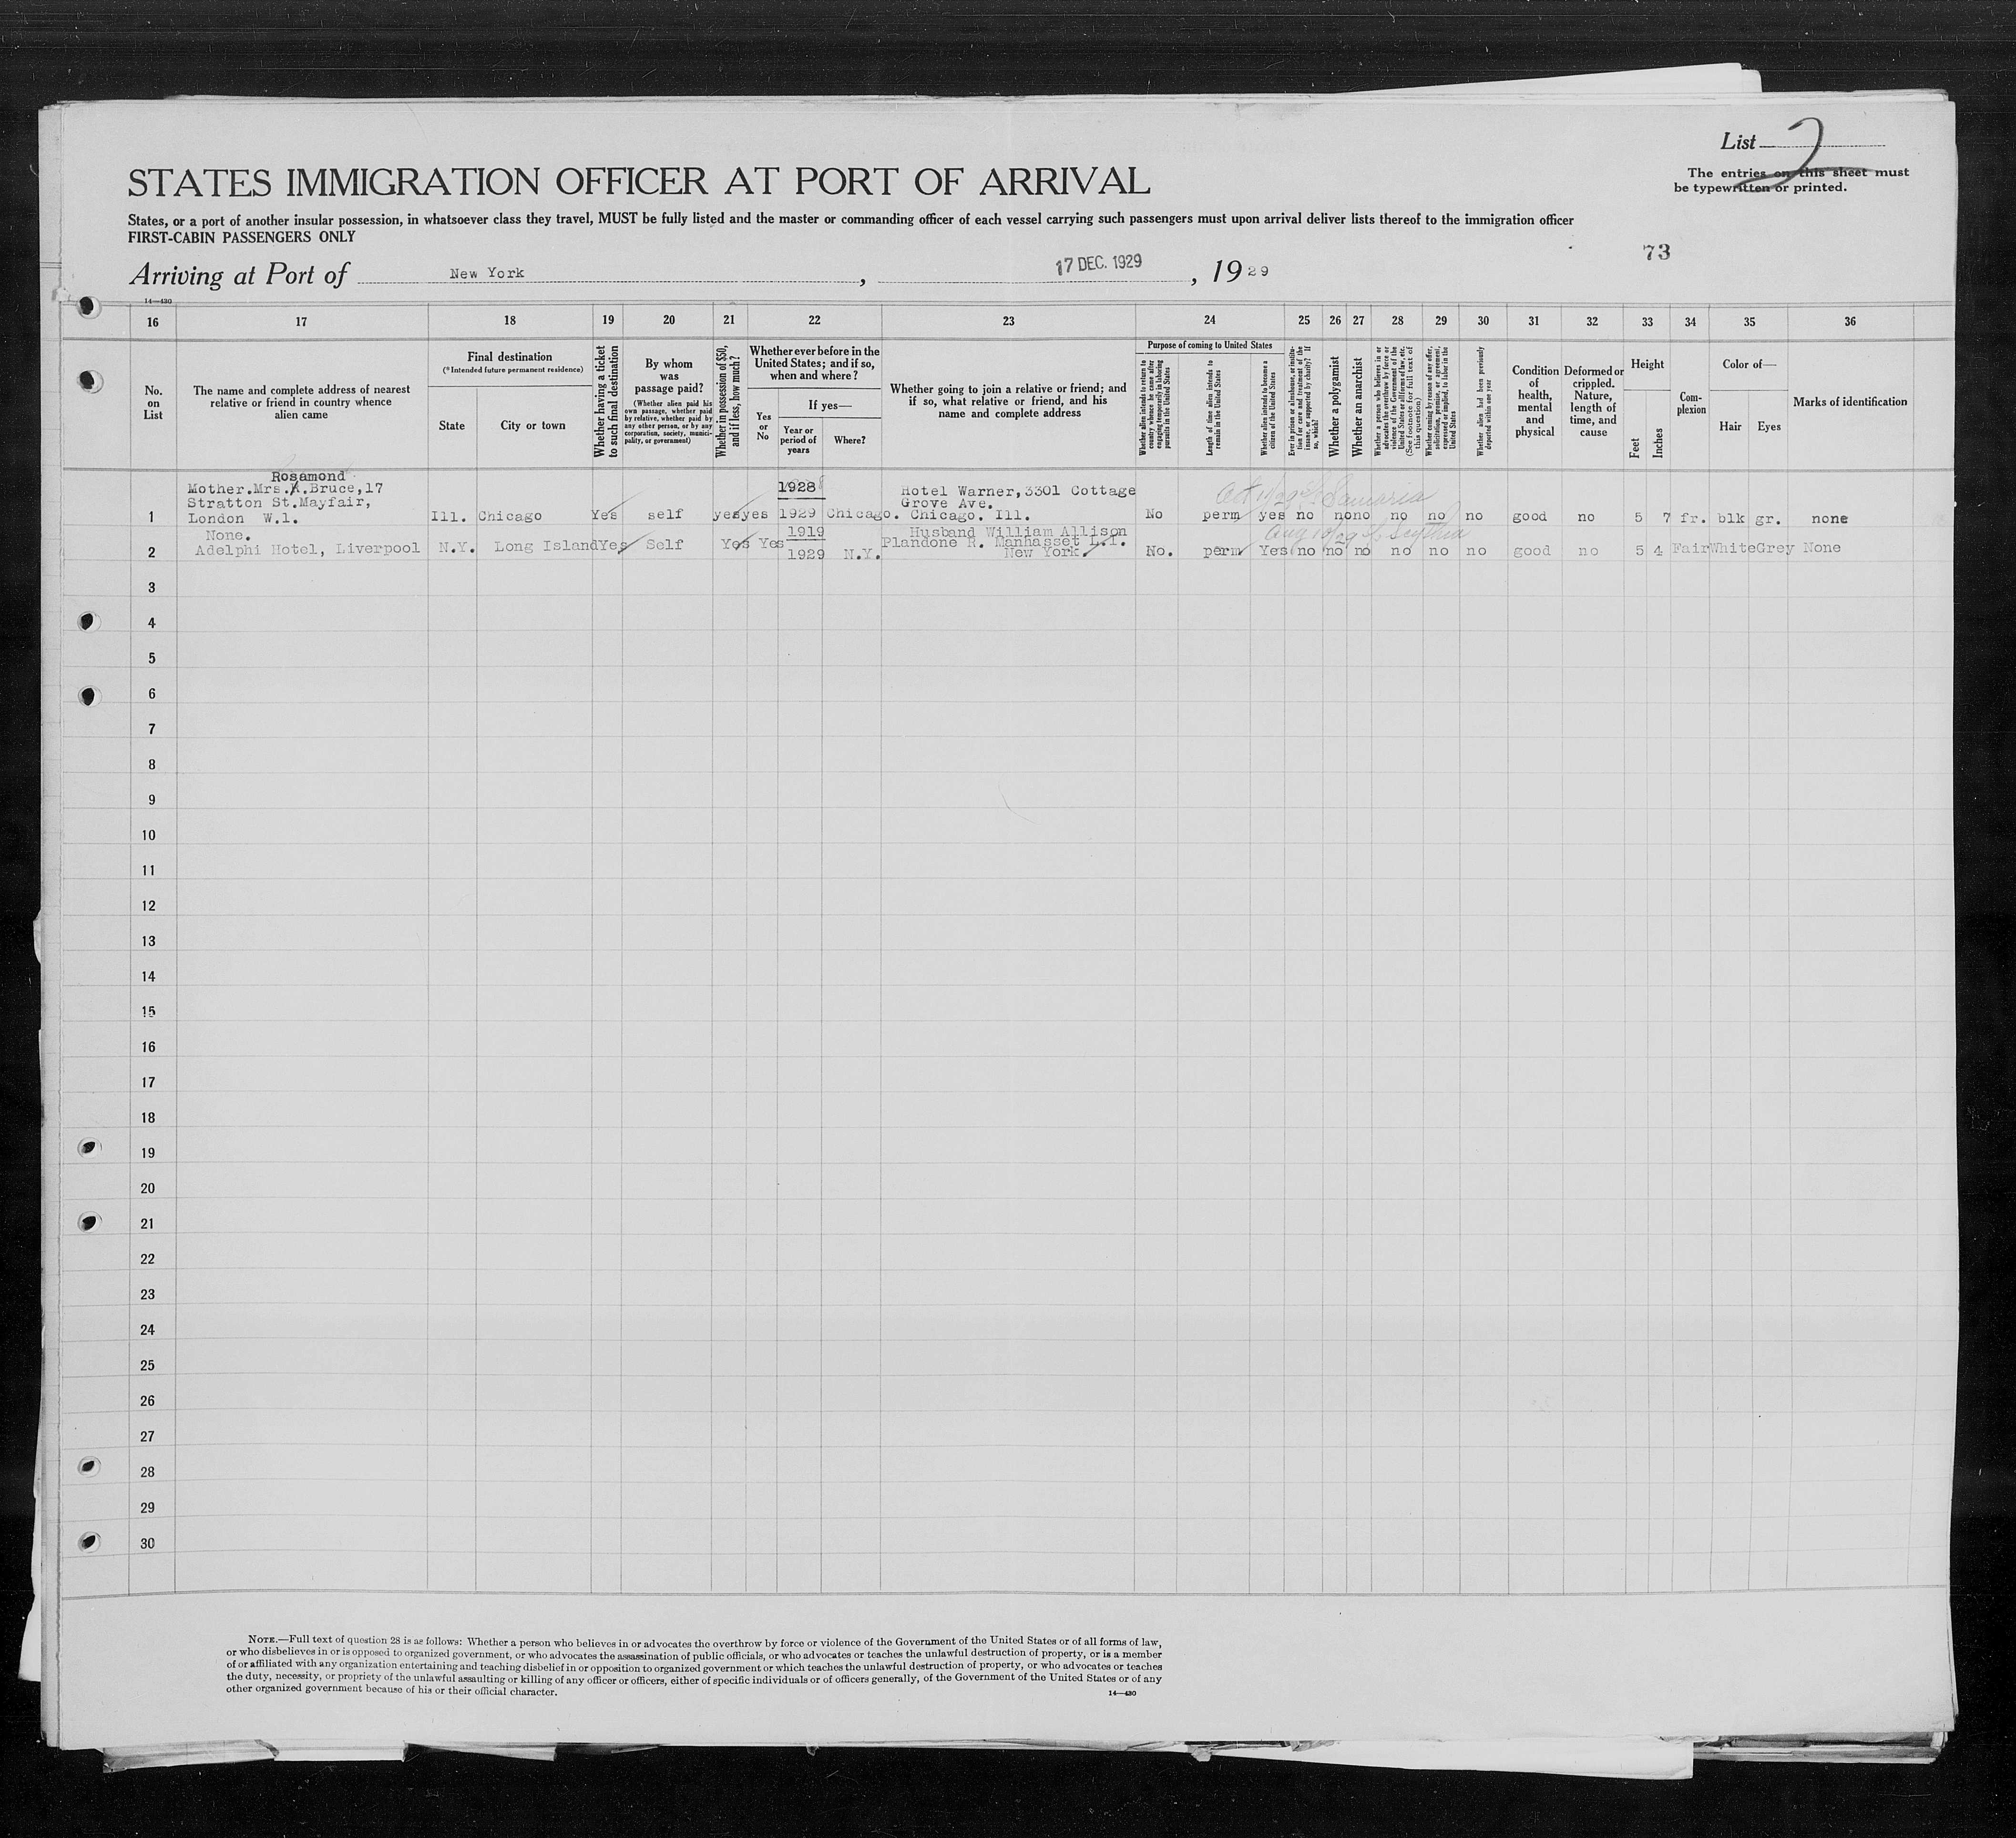 List 2
The entries on this sheet must
be typewritten or printed.
STATES IMMIGRATION OFFICER AT PORT OF ARRIVAL
States, or a port of another insular possession, in whatsoever class they travel, MUST be fully listed and the master or commanding officer of each vessel carrying such passengers must upon arrival deliver lists thereof to the immigration officer
FIRST-CABIN PASSENGERS ONLY
73
Arriving at Port of New York, 17 DEC. 1929, 1929
14—430
16 17 18 19 20 21 22 23 24 25 26 27 28 29 30 31 32 33 34 35 36
No.
on
List
The name and complete address of nearest
relative or friend in country whence
alien came
Final destination
(*Intended future permanent residence)
State
City or town
Whether having a ticket
to such final destination
By whom
was
passage paid?
(Whether alien paid his
own passage, whether paid
by relative, whether paid by
any other person, or by any
corporation, society, munici-
pality, or government)
Whether in possession of $50,
and if less, how much?
Whether ever before in the
United States; and if so,
when and where?
Yes
or
No
If yes—
Year or
period of
years
Where?
Whether going to join a relative or friend; and
if so, what relative or friend, and his
name and complete address
Purpose of coming to United States
Whether alien intends to return to
country whence he came after
engaging temporarily in laboring
pursuits in the United States
Length of time alien intends to
remain in the United States
Whether alien intends to become a
citizen of the United States
Ever in prison or almshouse, or institu-
tion for care and treatment of the
insane, or supported by charity? If
so, which?
Whether a polygamist
Whether an anarchist
Whether a person who believes in or
advocates the overthrow by force or
violence of the Government of the
United States or all forms of law, etc.
(See footnote for full text of
this question)
Whether coming by reason of any offer,
solicitation, promise, or agreement,
expressed or implied, to labor in the
United States
Whether alien had been previously
deported within one year
Condition
of
health,
mental
and
physical
Deformed or
crippled.
Nature,
length of
time, and
cause
Height
Feet
Inches
Com-
plexion
Color of—
Hair
Eyes
Marks of identification
Rosamond
Mother.Mrs.A.Bruce,17
Stratton St.Mayfair,
1 London W.1. Ill. Chicago Yes self yes yes 1928 1929 Chicago.
Hotel Warner,3301 Cottage
Grove Ave.
Chicago. Ill.
Samaria
No perm yes no no no no no no good no 5 7 fr. blk gr. none
None.
2 Adelphi Hotel, Liverpool N.Y. Long Island Yes Self Yes Yes 1919 1929 N.Y.
Husband William Allison
Plandone R. Manhasset L.I.
New York
No. perm Yes no no no no no no good no 5 4 Fair White Grey None
3
4
5
6
7
8
9
10
11
12
13
14
15
16
17
18
19
20
21
22
23
24
25
26
27
28
29
30
NOTE.—Full text of question 28 is as follows: Whether a person who believes in or advocates the overthrow by force or violence of the Government of the United States or of all forms of law,
or who disbelieves in or is opposed to organized government, or who advocates the assassination of public officials, or who advocates or teaches the unlawful destruction of property, or is a member
of or affiliated with any organization entertaining and teaching disbelief in or opposition to organized government or which teaches the unlawful destruction of property, or who advocates or teaches
the duty, necessity, or propriety of the unlawful assaulting or killing of any officer or officers, either of specific individuals or of officers generally, of the Government of the United States or of any
other organized government because of his or their official character.
14—430